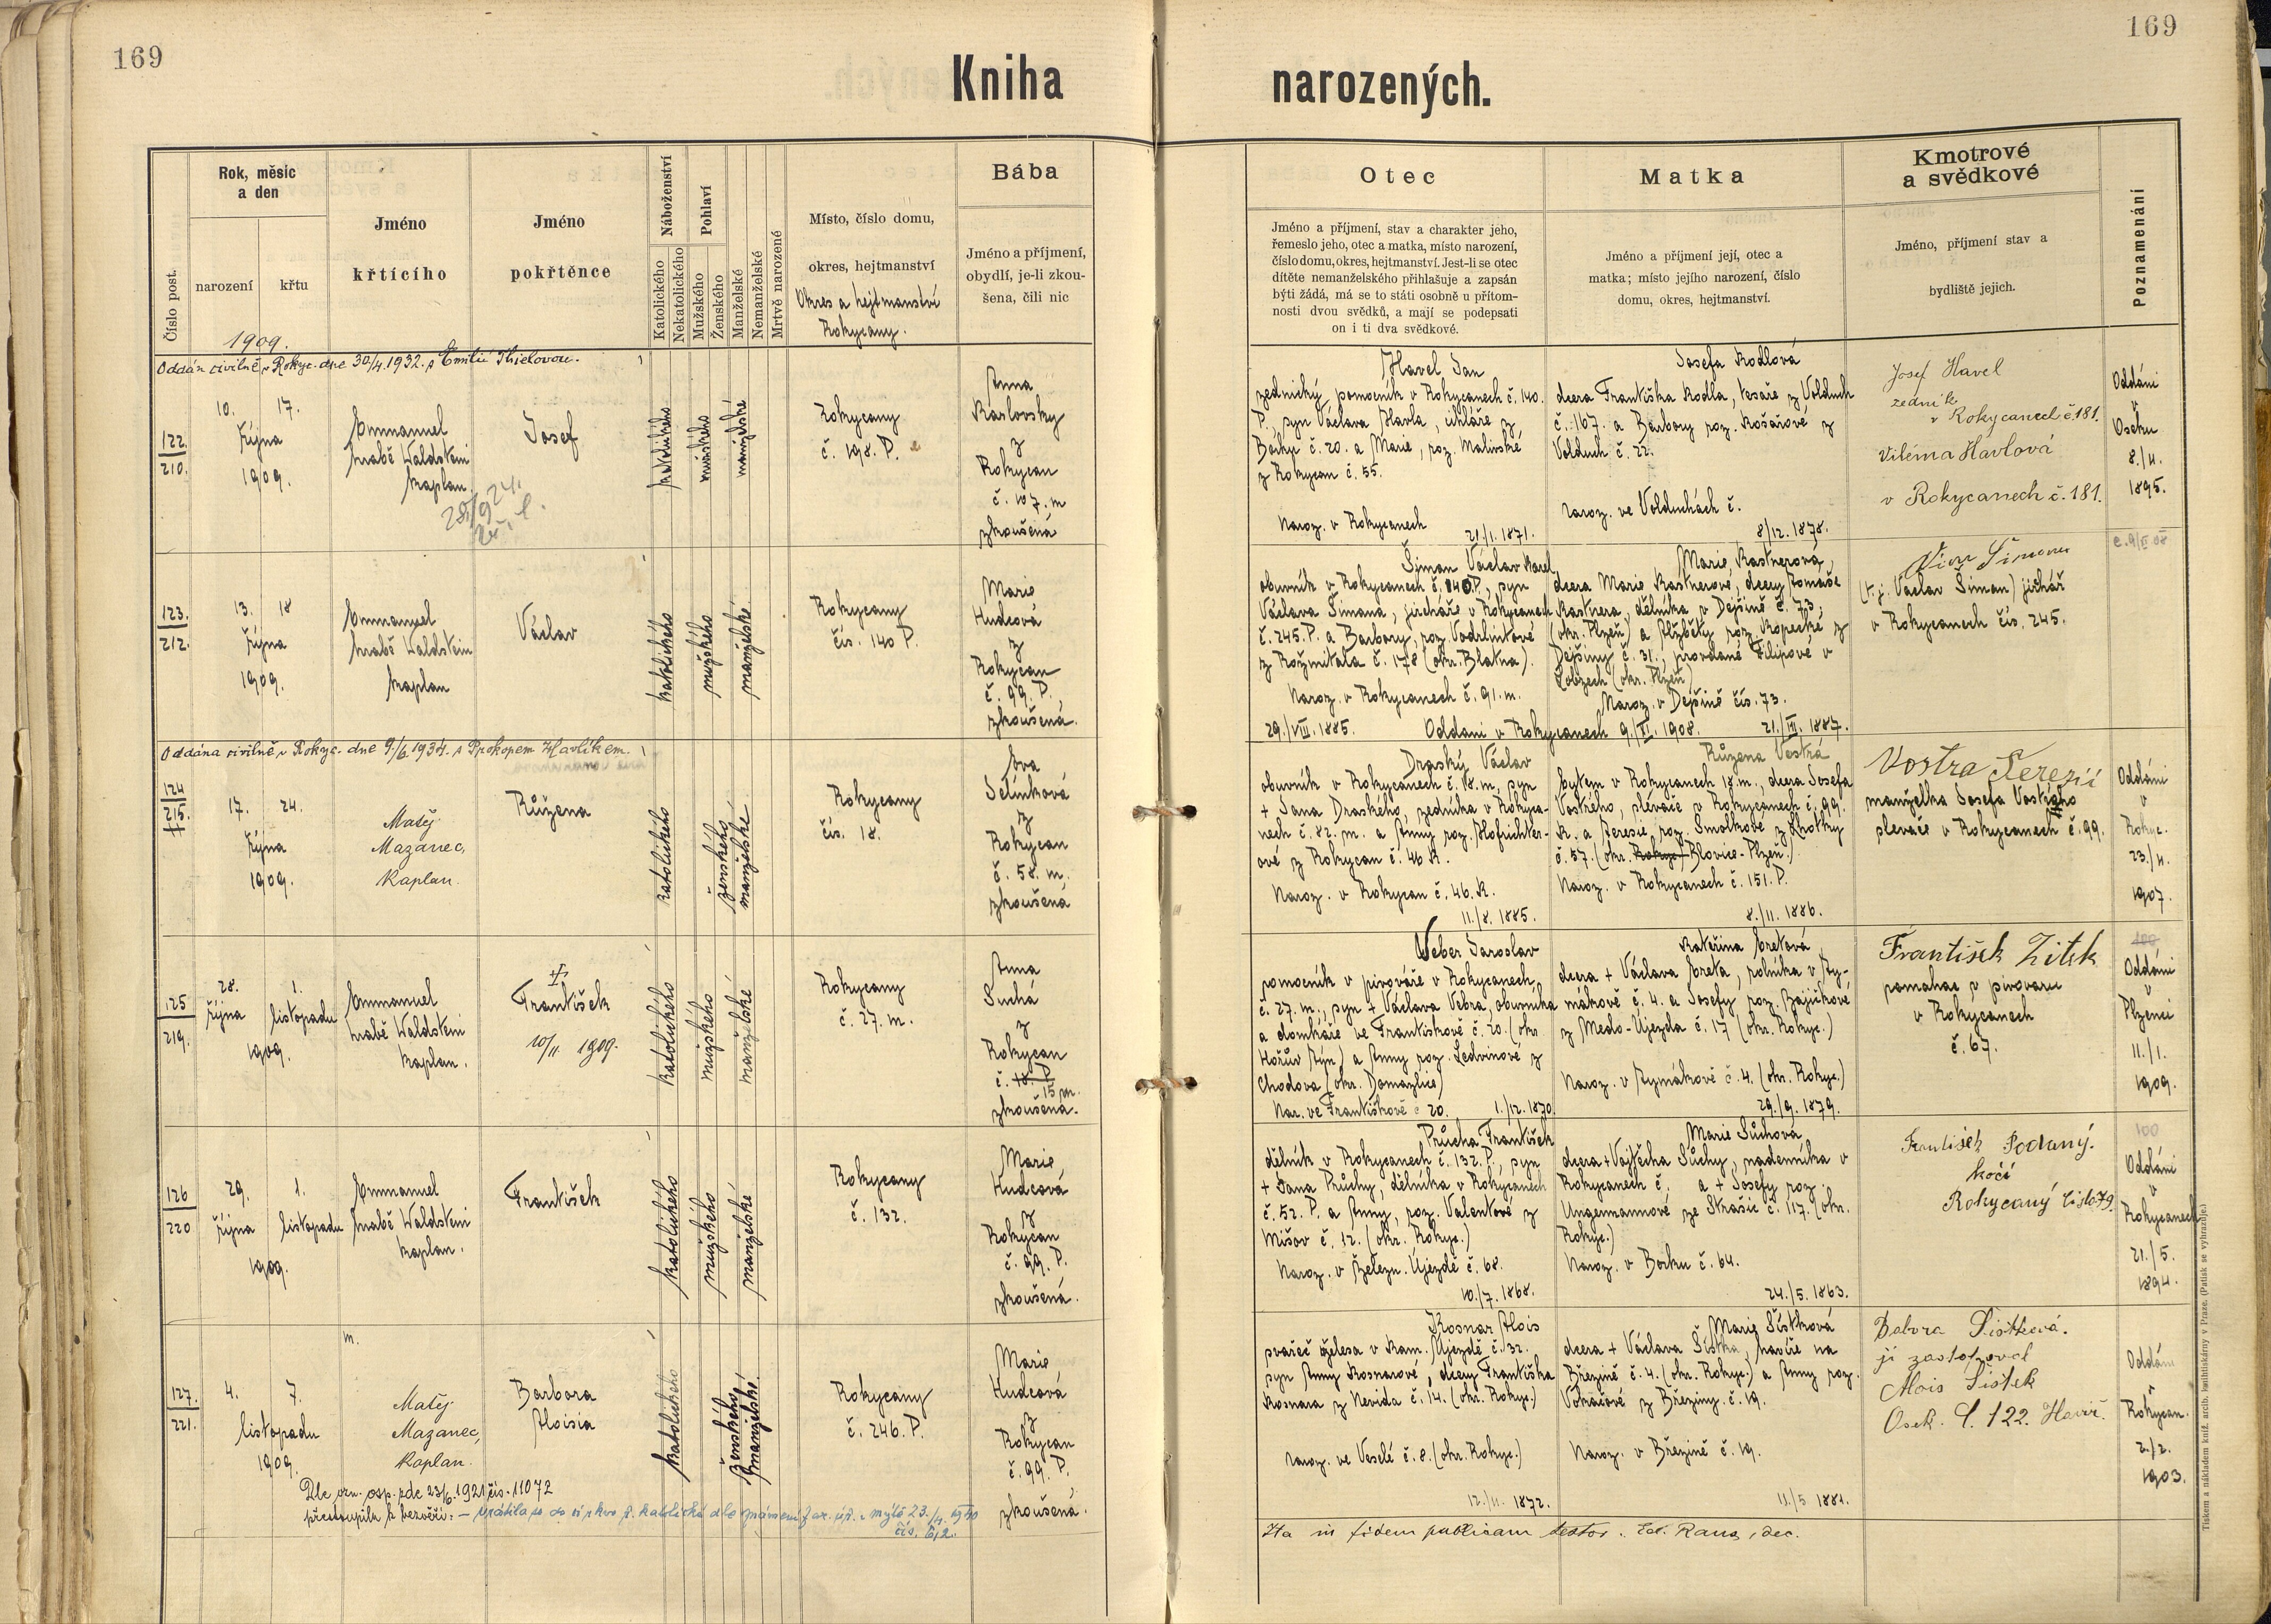 169
169
Kniha narozených.
Číslo post.
Rok, měsíc
a den
narození
křtu
1909.
Jméno
křtícího
Jméno
pokřtěnce
Náboženství
Katolického
Nekatolického
Pohlaví
Mužského
Ženského
Manželské
Nemanželské
Mrtvě narozené
Místo, číslo domu,
okres, hejtmanství
Okres a hejtmanství
Rokycany.
Bába
Jméno a příjmení,
obydlí, je-li zkou-
šena, čili nic
Otec
Jméno a příjmení, stav a charakter jeho,
řemeslo jeho, otec a matka, místo narození,
číslo domu, okres, hejtmanství. Jest-li se otec
dítěte nemanželského přihlašuje a zapsán
býti žádá, má se to státi osobně u přítom-
nosti dvou svědků, a mají se podepsati
on i ti dva svědkové.
Matka
Jméno a příjmení její, otec a
matka; místo jejího narození, číslo
domu, okres, hejtmanství.
Kmotrové
a svědkové
Jméno, příjmení stav a
bydliště jejich.
Poznamenání
Oddán civilně v Rokyc. dne 30/4.1932. s Emilií Thielovou.
122.
210.
10. 17.
října
1909.
Emmanuel
hrabě Waldstein
kaplan.
28/9 24.
Josef
katolického
mužského
manželské
Rokycany
č. 198. P.
Anna
Karlovsky
z
Rokycan
č. 107. m
zkoušená
Havel Jan
zednický pomocník v Rokycanech č. 140.
P., syn Václava Havla, cihláře z
Borku č. 20. a Marie, roz. Malinské
z Rokycan č. 55.
Naroz. v Rokycanech
21/1. 1871.
Josefa Kodlová
dcera Františka Kodla, tesaře z Volduch
č. 167. a Barbory roz. Košařové z
Volduch č. 22.
Naroz. ve Volduchách č.
8/12. 1878.
Josef Havel
zedník
v Rokycanech č 181.
Viléma Havlová
v Rokycanech č. 181.
Oddáni
v
Oseku
8./4.
1895.
123.
212.
13. 18
října
1909.
Emmanuel
hrabě Waldstein
kaplan
Václav
katolického
mužského
manželské
Rokycany
čís. 140 P.
Marie
Hudcová
z
Rokycan
č. 99. P.
zkoušená.
Šiman Václav Karel,
obuvník v Rokycanech č. 140.P., syn
Václava Šimana, jircháře v Rokycanech
č. 245. P. a Barbory, roz. Vodrlintové
z Rožmitála č. 178 (okr. Blatna).
Naroz. v Rokycanech č. 91. m.
29./VIII. 1885.
Marie Kastnerová,
dcera Marie Kastnerové, dcery Tomáše
Kastnera, dělníka v Dejšině č. 73,
(okr. Plzeň) a Alžběty roz. Kopecké z
Dejšiny č. 31., provdané Filipové v
Lobzech (okr. Plzeň)
Naroz. v Dejšině čís. 73.
21./III. 1887.
Oddáni v Rokycanech 9/XI. 1908.
(t. j. Václav Šiman) jirchář
v Rokycanech čís. 245.
Oddána civilně v Rokyc. dne 9/6.1934. s Prokopem Havlíkem.
124
215.
17. 24.
října
1909.
Matěj
Mazanec,
Kaplan.
Růžena
katolického
ženského
manželské
Rokycany
čís. 18.
Eva
Selínková
z
Rokycan
č. 58. m.
zkoušená
Draský Václav
obuvník v Rokycanech č. 18. m., syn
+ Jana Draského, zedníka v Rokyca-
nech č. 82. m. a Anny roz. Hofrichter-
ové z Rokycan č. 46 K.
Naroz. v Rokycan č. 46. K.
11./8. 1885.
Růžena Vostrá
bytem v Rokycanech 18 m., dcera Josefa
Vostrého, slévače v Rokycanech č. 99.
K. a Terezie, roz. Smolkové z Lhotky
č. 57. (okr. Rokyc. Blovice-Plzeň.)
Naroz. v Rokycanech č. 151. P.
8./11. 1886.
Vostra Terezii
manželka Josefa Vostrého
slevače v Rokycanech č. 99.
Oddáni
v
Rokyc.
23./4.
1907.
125
219.
28. 1.
října listopadu
1909.
Emmanuel
hrabě Waldstein
kaplan.
František
10/11 1909.
katolického
mužského
manželské
Rokycany
č. 27. m.
Anna
Suchá
z
Rokycan
č. 18. P.
15 m.
zkoušená.
Weber Jaroslav
pomocník v pivováře v Rokycanech
č. 27. m., syn + Václava Vebra, obuvníka
a domkáře ve Františkově č. 20. (okr
Horšův Týn) a Anny roz. Ledvinové z
Chodova (okr. Domažlice)
Nar. ve Františkově č 20. 1./12. 1870
Kateřina Cretová,
dcera + Václava Creta, rolníka v Ty-
mákově č. 4. a Josefy roz. Bajčkové
z Medo-Újezda č. 17 (okr. Rokyc.)
Naroz. v Tymákově č. 4. (okr. Rokyc.)
29./9. 1879.
František Zítek
pomahac v pivovaru
v Rokycanech
č. 67.
Oddáni
v
Plzenci
11./1.
1909.
126
220
29. 1.
října listopadu
1909.
Emmanuel
hrabě Waldstein
kaplan.
František
katolického
mužského
manželské
Rokycany
č. 132.
Marie
Hudcová
z
Rokycan
č. 99. P.
zkoušená.
Průcha František
dělník v Rokycanech č. 132. P., syn
+ Jana Průchy, dělníka v Rokycanech
č. 52. P. a Anny, roz. Valentové z
Mišov č. 12. (okr. Rokyc.)
Naroz. v Železn. Újezdě č. 68.
10./7. 1868.
Marie Súchová
dcera + Vojtěcha Súchy, nadenníka v
Rokycanech č. a + Josefy roz.
Ungermannové ze Strašic č. 117. (okr.
Rokyc.)
Naroz. v Borku č. 64.
24./5. 1863.
František Podaný.
kočí
Rokycaný číslo 79.
100
Oddáni
v
Rokycanech
21./5.
1894.
127.
221.
m.
4. 7.
listopadu
1909.
Matěj
Mazanec,
Kaplan.
Barbora
Aloisia
katolického
ženského
manželské
Rokycany
č. 246. P.
Marie
Hudcová
z
Rokycan
č. 99. P.
zkoušená.
Kosnar Alois
svářeč železa v Kam. Újezdě č. 32.
syn Anny Kosnarové, dcery Františka
Kosnara z Nevida č. 14. (okr. Rokyc.)
Naroz. ve Veselé č. 8. (okr. Rokyc.)
12./11. 1872.
Marie Šístková
dcera + Václava Šístka, havíře na
Březině č. 4. (okr. Rokyc.) a Anny roz.
Votracové z Březiny. č. 19.
Naroz. v Březině č. 19.
11./5 1881.
Babora Šistková.
ji zastotpoval
Alois Šistek
Osek. Č. 122. Havíř.
Oddáni
v
Rokycan.
2./2.
1903.
Dle ozn. osp. zde 23/6. 1921 čís. 11072
přestoupila k bezvěří. – vrátila se do církve ř. katolické dle
čís. 612.
Ita in fidem publicam testor. Ed. Raus, dec.
Tiskem a nákladem kníž. arcib. knihtiskárny v Praze. (Patisk se vyhrazuje.)